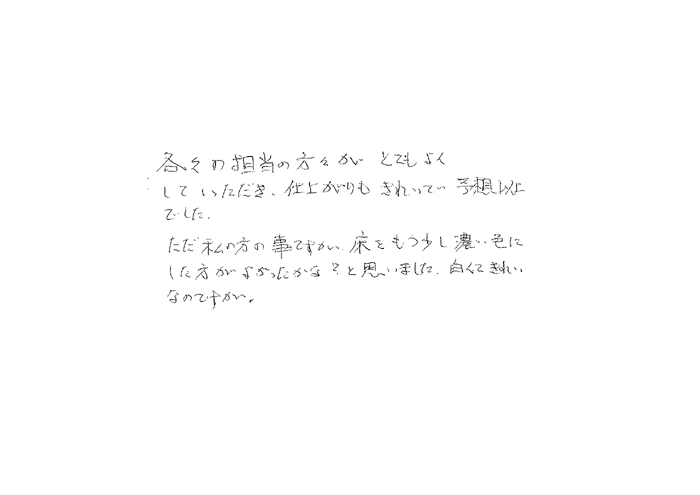 各々の担当の方々が とてもよく
していただき、仕上がりも きれいで 予想以上
でした。
ただ 私の方の事ですが 床をもう少し濃い色に
した方がよかったかな？と思いました。白くてきれい
なのですが。